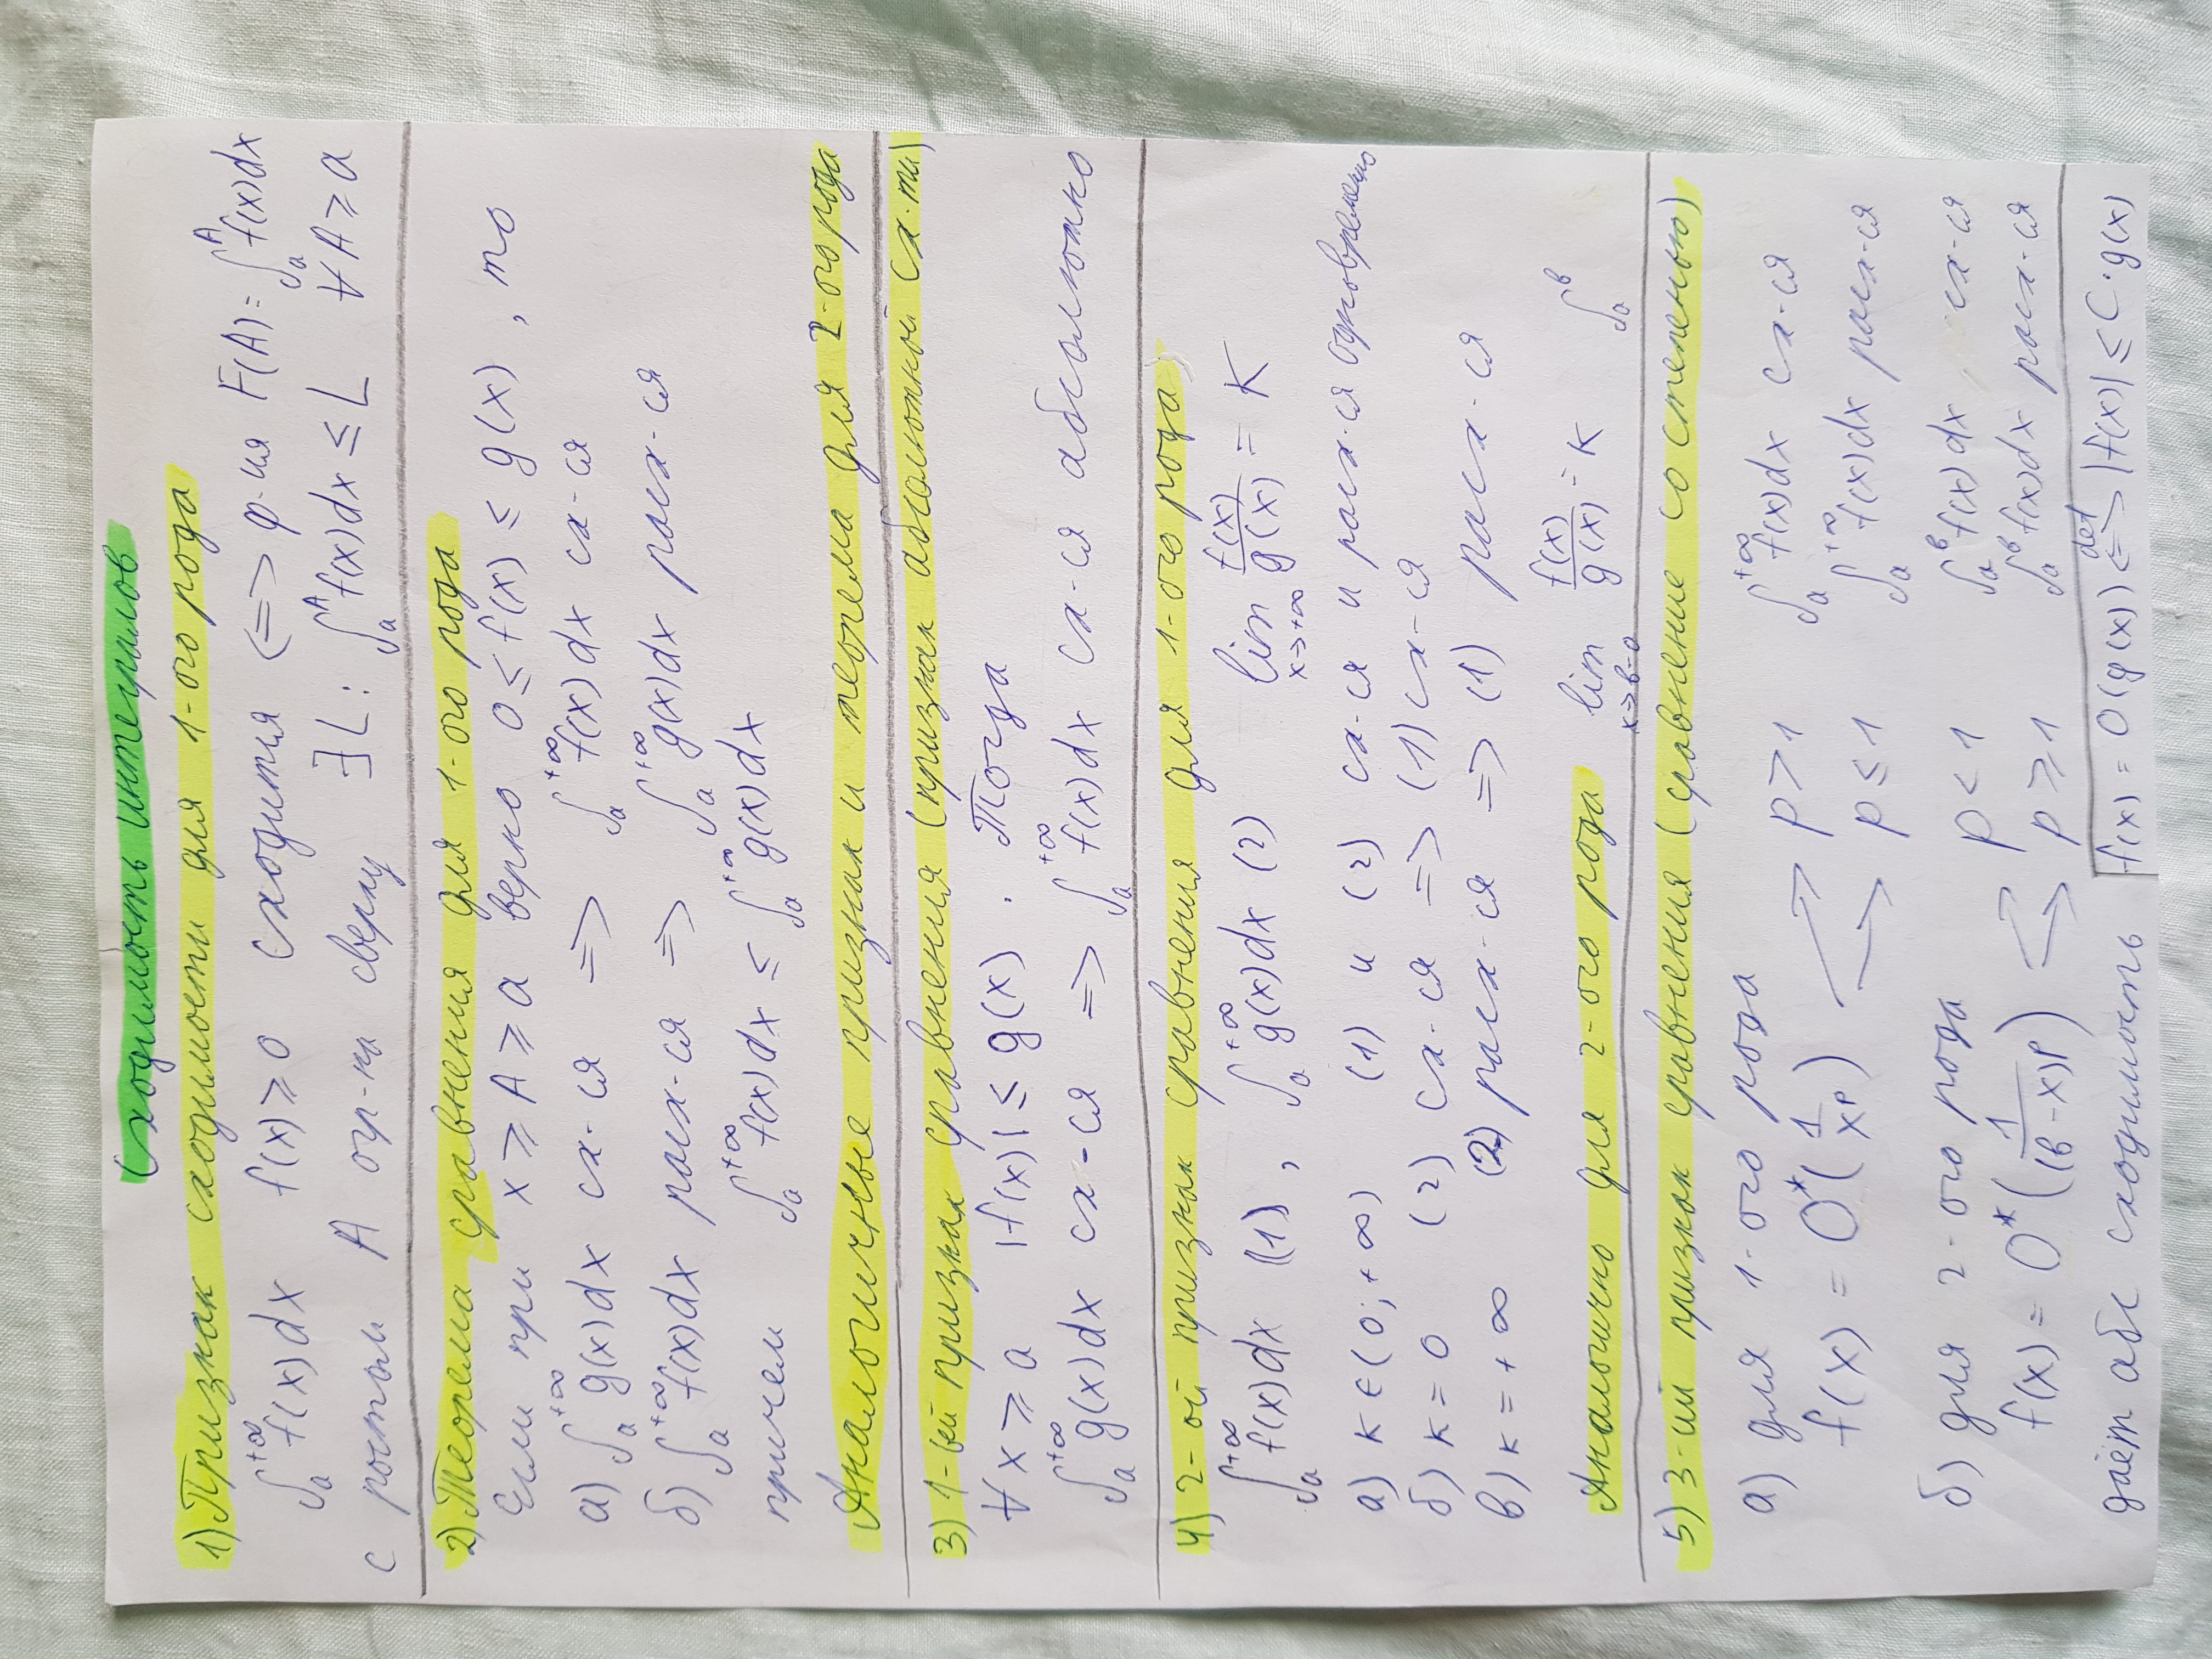 Сходимость интегралов
1) Признак сходимости для 1-ого рода
∫ₐ^+∞ f(x)dx f(x)≥0 сходится <=> ф-ия F(A)=∫ₐ^A f(x)dx
с ростом A огр-на сверху ∃L: ∫ₐ^A f(x)dx ≤ L ∀A≥a
2) Теорема сравнения для 1-ого рода
Если при x≥A≥a верно 0≤f(x)≤g(x), то
а) ∫ₐ^+∞ g(x)dx сх-ся => ∫ₐ^+∞ f(x)dx сх-ся
б) ∫ₐ^+∞ f(x)dx расх-ся => ∫ₐ^+∞ g(x)dx расх-ся
причем ∫ₐ^+∞ f(x)dx ≤ ∫ₐ^+∞ g(x)dx
Аналогичные признак и теорема для 2-ого рода
3) 1-ый признак сравнения (признак абсолютной сх-ти)
∀x≥a |f(x)|≤g(x). Тогда
∫ₐ^+∞ g(x)dx сх-ся => ∫ₐ^+∞ f(x)dx сх-ся абсолютно
4) 2-ой признак сравнения для 1-ого рода
∫ₐ^+∞ f(x)dx (1), ∫ₐ^+∞ g(x)dx (2) lim x->+∞ f(x)/g(x) = K
а) к∈(0;+∞) (1) и (2) сх-ся и расх-ся одновременно
б) к=0 (2) сх-ся => (1) сх-ся
в) к=+∞ (2) расх-ся => (1) расх-ся
Аналогично для 2-ого рода lim x->в-0 f(x)/g(x) = к ∫ₐ^в
5) 3-ий признак сравнения (сравнение со степенью)
а) для 1-ого рода
f(x) = O*(1/x^p) p>1 ∫ₐ^+∞ f(x)dx сх-ся
p≤1 ∫ₐ^+∞ f(x)dx расх-ся
б) для 2-ого рода
f(x) = O*(1/(в-x)^p) p<1 ∫ₐ^в f(x)dx сх-ся
p≥1 ∫ₐ^в f(x)dx расх-ся
даёт абс сходимость f(x) = O(g(x)) <=>^det |f(x)| ≤ C·g(x)